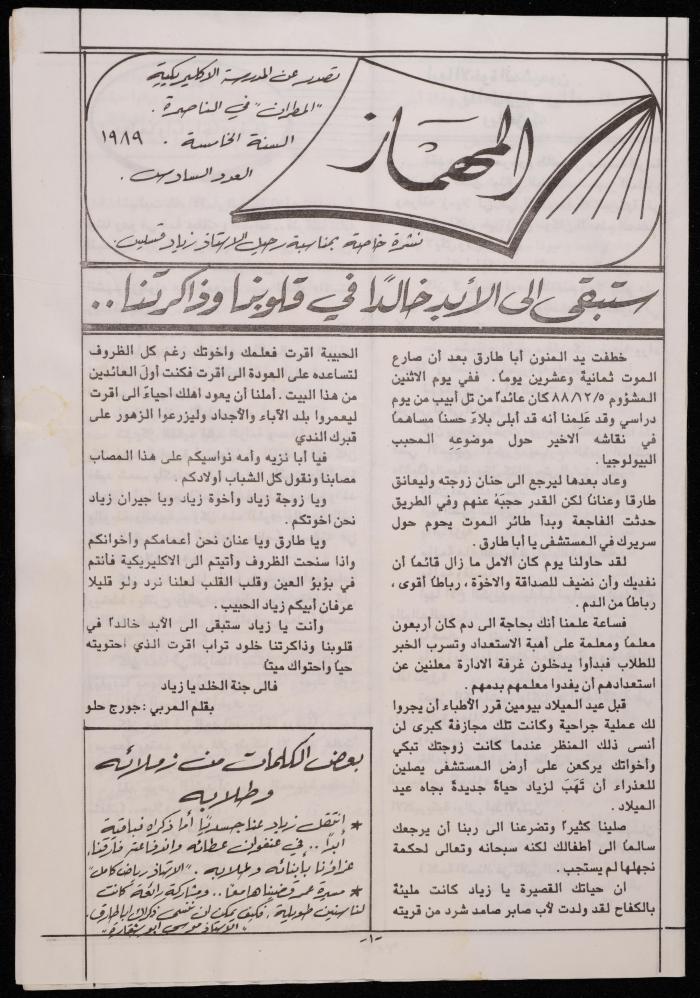 تصدر عن المدرسة الاكليريكية
"المطران" في الناصرة.
السنة الخامسة . ١٩٨٩
العدد السادس.
المهماز
نشرة خاصة بمناسبة رحيل الاستاذ زياد قسيس.
ستبقى الى الأبد خالدًا في قلوبنا وذاكرتنا..
خطفت يد المنون أبا طارق بعد أن صارع
الموت ثمانية وعشرين يوماً. ففي يوم الاثنين
المشؤوم ٨٨/١٢/٥ كان عائداً من تل أبيب من يوم
دراسي وقد علِمنا أنه قد أبلى بلاءً حسناً مساهماً
في نقاشه الاخير حول موضوعهِ المحبب
البيولوجيا.
وعاد بعدها ليرجع الى حنان زوجته وليعانق
طارقا وعنانا لكن القدر حجبَهُ عنهم وفي الطريق
حدثت الفاجعة وبدأ طائر الموت يحوم حول
سريرك في المستشفى يا أبا طارق.
لقد حاولنا يوم كان الامل ما زال قائماً أن
نفديك وأن نضيف للصداقة والاخوّة، رباطاً أقوى،
رباطاً من الدم.
فساعة علمنا أنك بحاجة الى دم كان أربعون
معلماً ومعلمة على أهبة الاستعداد وتسرب الخبر
للطلاب فبدأوا يدخلون غرفة الادارة معلنين عن
استعدادهم أن يفدوا معلمهم بدمهم.
قبل عيد الميلاد بيومين قرر الأطباء أن يجروا
لك عملية جراحية وكانت تلك مجازفة كبرى لن
أنسى ذلك المنظر عندما كانت زوجتك تبكي
وأخواتك يركعن على أرض المستشفى يصلين
للعذراء أن تَهَبَ لزياد حياةً جديدةً بجاه عيد
الميلاد.
صلينا كثيراً وتضرعنا الى ربنا أن يرجعك
سالماً الى أطفالك لكنه سبحانه وتعالى لحكمة
نجهلها لم يستجب.
ان حياتك القصيرة يا زياد كانت مليئة
بالكفاح لقد ولدت لأب صابر صامد شرد من قريته
الحبيبة اقرت فعلمك وأخوتك رغم كل الظروف
لتساعده على العودة الى اقرت فكنت أولَ العائدين
من هذا البيت. أملنا أن يعود اهلك احياءً الى اقرت
ليعمروا بلد الآباء والأجداد وليزرعوا الزهور على
قبرك الندي
فيا أبا نزيه وأمه نواسيكم على هذا المصاب
مصابنا ونقول كل الشباب أولادكم.
ويا زوجة زياد وأخوة زياد ويا جيران زياد
نحن أخوتكم.
ويا طارق ويا عنان نحن أعمامكم وأخوانكم
واذا سنحت الظروف وأتيتم الى الاكليريكية فأنتم
في بؤبؤ العين وقلب القلب لعلنا نرد ولو قليلا
عرفان أبيكم زياد الحبيب.
وأنت يا زياد ستبقى الى الأبد خالداً في
قلوبنا وذاكرتنا خلود تراب اقرت الذي احتويته
حياً واحتواك ميتاً
فالى جنة الخلد يا زياد
بقلم المربي: جورج حلو
بعض الكلمات من زملائه
وطلابه
* انتقل زياد عنا جسديًا أما ذكراه فباقية
أبداً.. في عنفوان عطائه واندفاعته فارقنا،
عزاؤنا بأبنائه وطلابه. "الاستاذ رياض كامل"
* مسيرة عمر قضيناها معًا.. ومشاركة رائعة كانت
لنا سنين طويلة، فكيف يمكن لن ننسى ذكراك يا ابا طارق.
"الاستاذ موسى ابو شقارة"
-١-